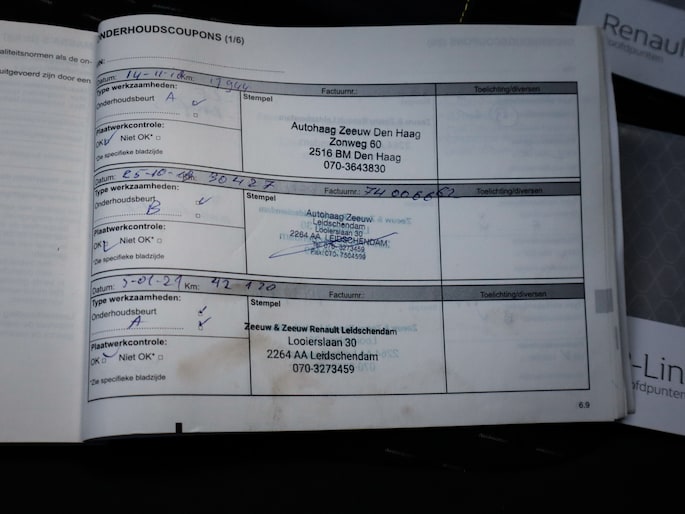 ONDERHOUDSCOUPONS (1/6)
aliteitsnormen als de on-
uitgevoerd zijn door een
Renault
oofdpunten
Datum: Km: 17944
Type werkzaamheden:
Onderhoudsbeurt A
Plaatwerkcontrole:
OK Niet OK*
*Zie specifieke bladzijde
Factuurnr.:
Stempel
Autohaag Zeeuw Den Haag
Zonweg 60
2516 BM Den Haag
070-3643830
Toelichting/diversen
Datum: Km: 30427
Type werkzaamheden:
Onderhoudsbeurt
B
Plaatwerkcontrole:
OK Niet OK*
*Zie specifieke bladzijde
Factuurnr.:
Stempel
Autohaag Zeeuw
Leidschendam
Looierslaan 30
2264 AA LEIDSCHENDAM
Tel. 070-3273459
Fax: 070-7504599
Toelichting/diversen
Datum: 5-01-21 Km: 42 120
Type werkzaamheden:
Onderhoudsbeurt
A
Plaatwerkcontrole:
OK Niet OK*
*Zie specifieke bladzijde
Factuurnr.:
Stempel
Zeeuw & Zeeuw Renault Leidschendam
Looierslaan 30
2264 AA Leidschendam
070-3273459
Toelichting/diversen
6.9
-Lin
ofdpunten